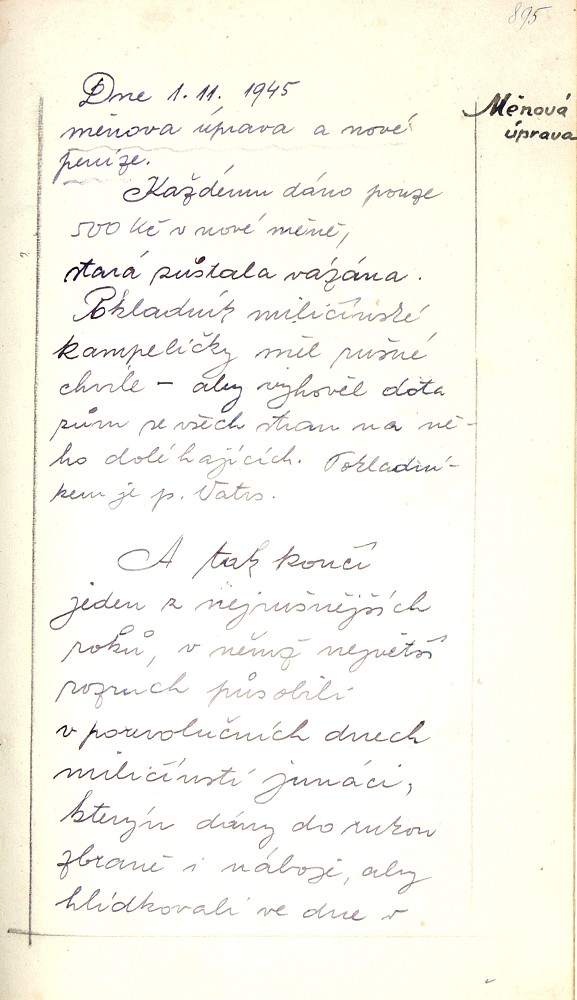 895
Měnová
úprava
Dne 1. 11. 1945
měnova úprava a nové
peníze.
Každému dáno pouze
500 Kč v nové měně,
stará zůstala vázána.
Pokladník miličínské
kampeličky měl rušné
chvíle – aby vyhověl dota
zům se všech stran na ně-
ho doléhajících. Pokladní-
kem je p. Vatrs.
A tak končí
jeden z nejrušnějších
roků, v němž největší
rozruch působili
v porevolučních dnech
miličínští junáci,
kterým dány do rukou
zbraně i náboje, aby
hlídkovali ve dne v